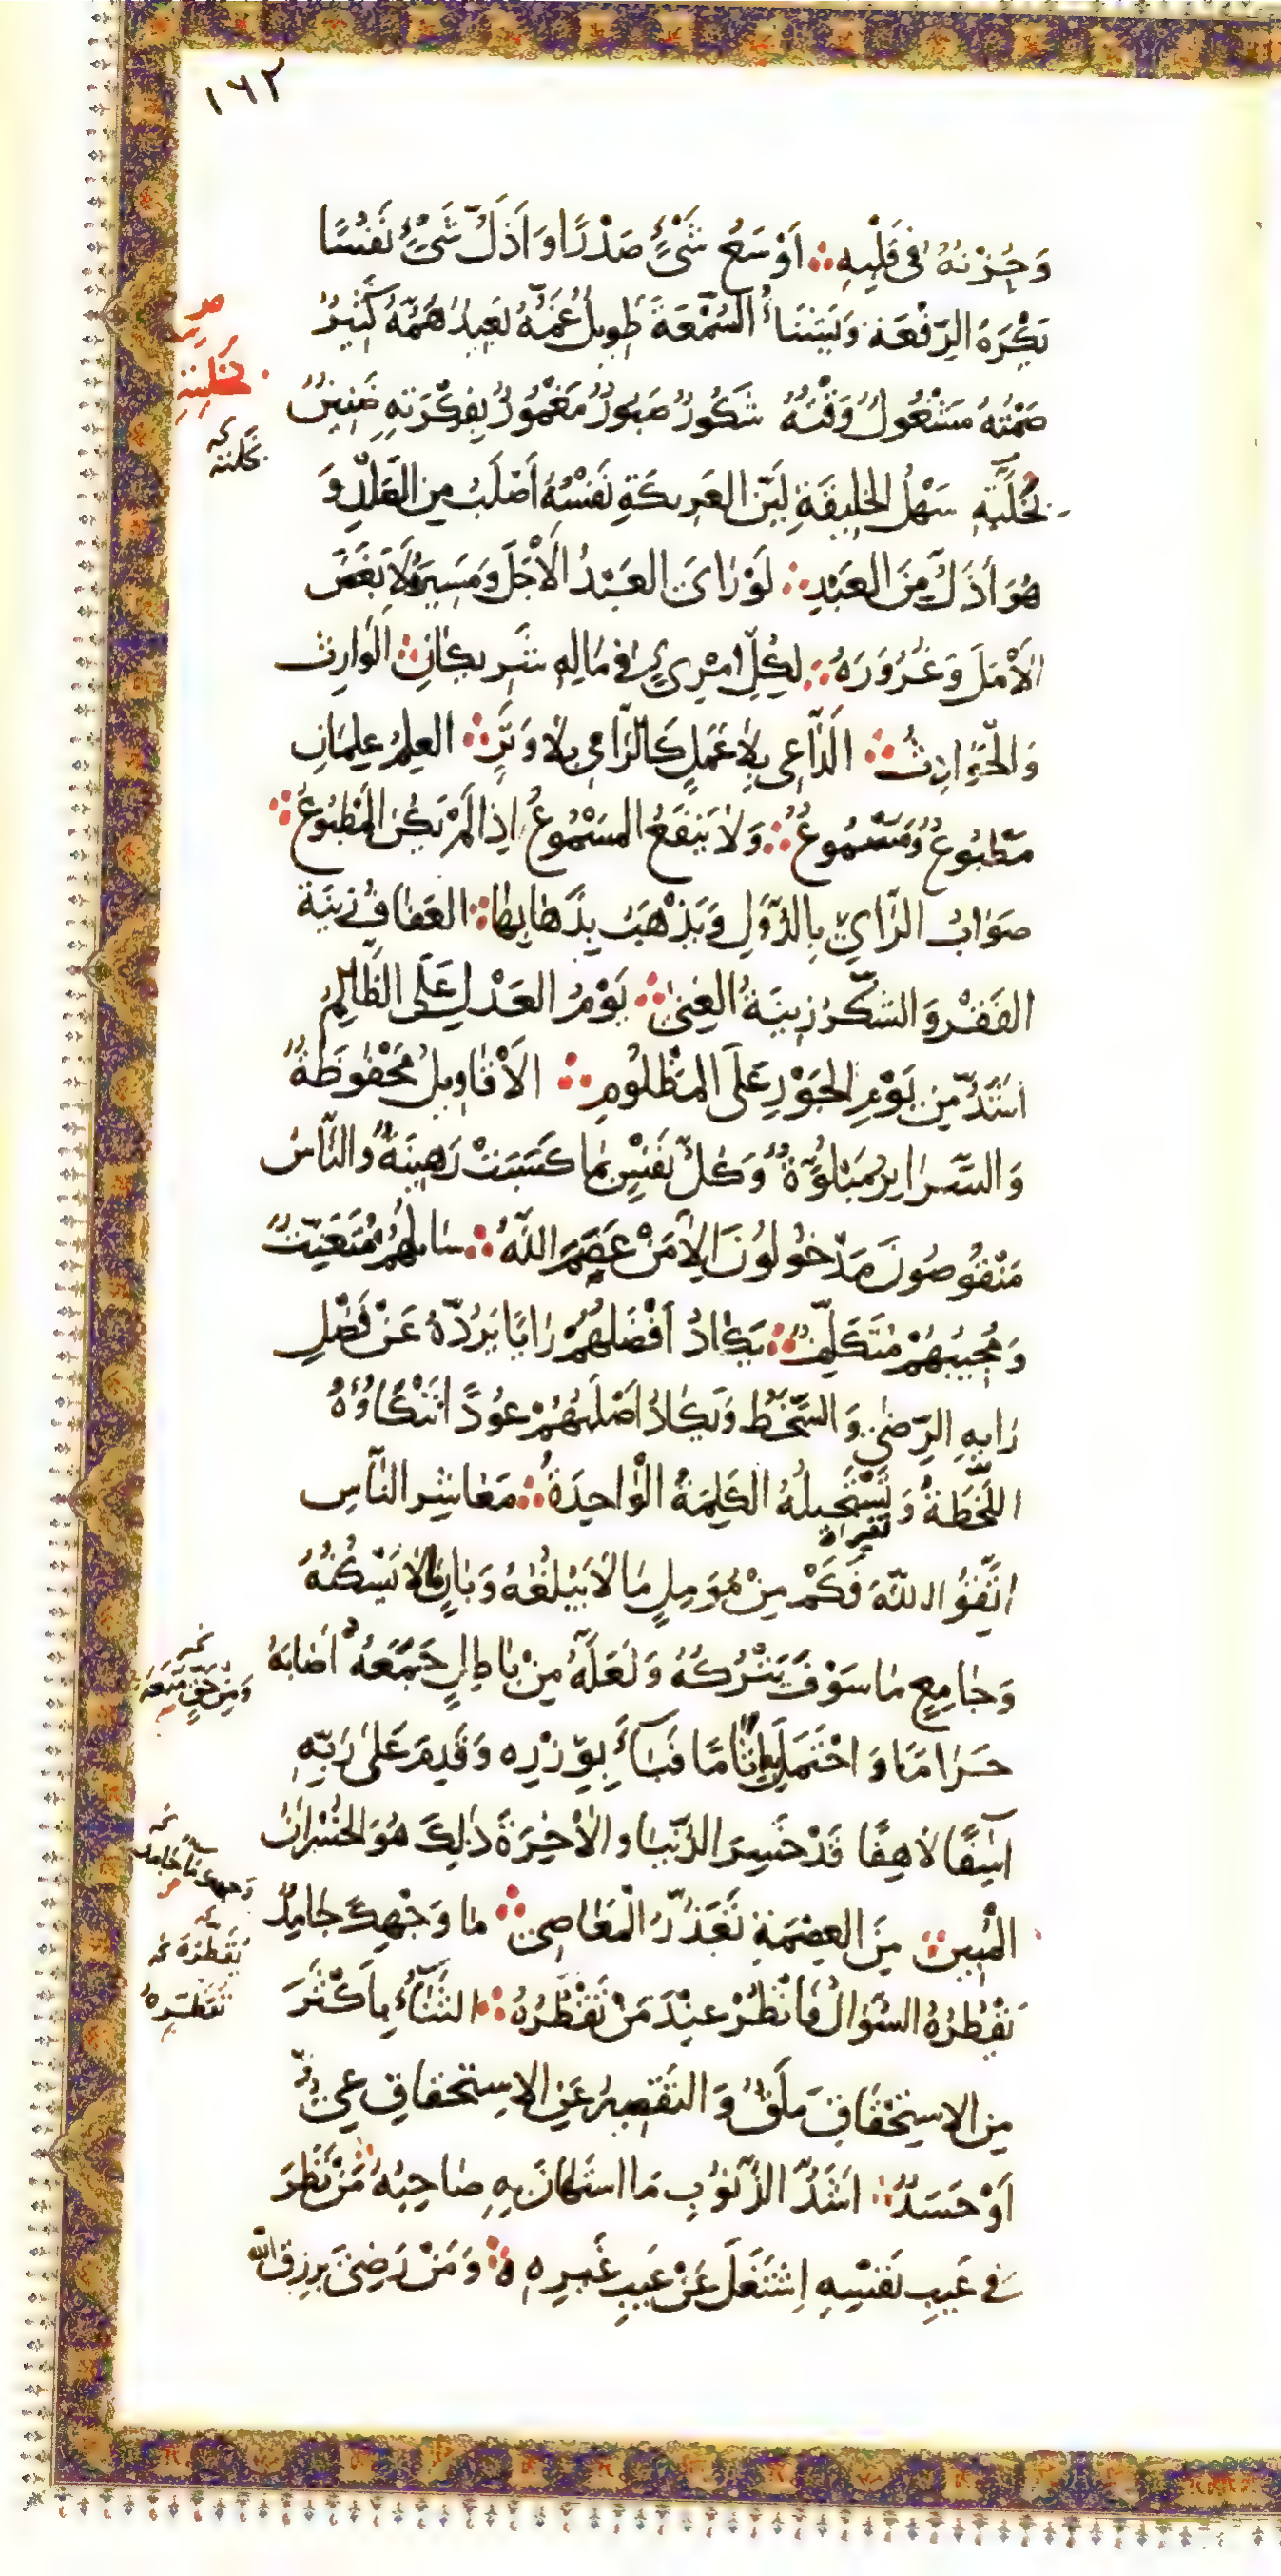 ١٦٢
وَحُزْنُهُ فِی قَلْبِهِ اَوْسَعُ شَیْءٍ صَدْرًا وَ اَذَلُّ شَیْءٍ نَفْسًا
يَكْرَهُ الرِّفْعَةَ وَيَشْنَاُ السُّمْعَةَ طَوِيلٌ غَمُّهُ بَعِيدٌ هَمُّهُ كَثِيرٌ
صَمْتُهُ مَشْغُولٌ وَقْتُهُ شَكُورٌ صَبُورٌ مَغْمُورٌ بِفِكْرَتِهِ ضَنِينٌ
بِخَلَّتِهِ سَهْلُ الخَلِيقَةِ لَيِّنُ العَرِيكَةِ نَفْسُهُ اَصْلَبُ مِنَ الصَّلْدِ وَ
هُوَ اَذَلُّ مِنَ العَبْدِ لَوْ رَاَى العَبْدُ الاَجَلَ وَمَسِيرَهُ لَاَبْغَضَ
الاَمَلَ وَغُرُورَهُ لِكُلِّ امْرِئٍ فِی مَالِهِ شَرِيكَانِ الوَارِثُ
وَالحَوَادِثُ الدَّاعِی بِلَا عَمَلٍ كَالرَّامِی بِلَا وَتَرٍ العِلْمُ عِلْمَانِ
مَطْبُوعٌ وَمَسْمُوعٌ وَلَا يَنْفَعُ المَسْمُوعُ اِذَا لَمْ يَكُنِ المَطْبُوعُ
صَوَابُ الرَّاْيِ بِالدُّوَلِ وَيَذْهَبُ بِذَهَابِهَا العَفَافُ زِينَةُ
الفَقْرِ وَالشُّكْرُ زِينَةُ الغِنَى يَوْمُ العَدْلِ عَلَى الظَّالِمِ
اَشَدُّ مِنْ يَوْمِ الجَوْرِ عَلَى المَظْلُومِ الاَقَاوِيلُ مَحْفُوظَةٌ
وَالسَّرَايِرُ مَبْلُوَّةٌ وَكُلُّ نَفْسٍ بِمَا كَسَبَتْ رَهِينَةٌ وَالنَّاسُ
مَنْقُوصُونَ مَدْخُولُونَ اِلَّا مَنْ عَصَمَ اللّٰهُ سَايِلُهُمْ مُتَعَنِّتٌ
وَمُجِيبُهُمْ مُتَكَلِّفٌ يَكَادُ اَفْضَلُهُمْ رَايًا يَرُدُّهُ عَنْ فَضْلِ
رَايِهِ الرِّضَى وَالسُّخْطُ وَيَكَادُ اَصْلَبُهُمْ عُودًا تَنْكَاُوُهُ
اللَّحْظَةُ وَتَسْتَحِيلُهُ الكَلِمَةُ الوَاحِدَةُ مَعَاشِرَ النَّاسِ
اتَّقُوا اللّٰهَ فَكَمْ مِنْ مُؤَمِّلٍ مَا لَا يَبْلُغُهُ وَبَانٍ مَا لَا يَسْكُنُهُ
وَجَامِعٍ مَا سَوْفَ يَتْرُكُهُ وَلَعَلَّهُ مِنْ بَاطِلٍ جَمَعَهُ اَصَابَهُ
وَمِنْ حَقٍّ مَنَعَهُ
حَرَامًا وَاحْتَمَلَ بِهِ اٰثَامًا فَبَاءَ بِوِزْرِهِ وَقَدِمَ عَلَى رَبِّهِ
اٰسِفًا لَاهِفًا قَدْ خَسِرَ الدُّنْيَا وَالاٰخِرَةَ ذٰلِكَ هُوَ الخُسْرَانُ
المُبِينُ مِنَ العِصْمَةِ تَعَذُّرُ المَعَاصِی مَا وَجْهِكَ جَامِدٌ
يُقْطِرُهُ السُّوَالُ فَانْظُرْ عِنْدَ مَنْ تُقْطِرُهُ الثَّنَاءُ بِاَكْثَرَ
مِنَ الاِسْتِحْقَاقِ مَلَقٌ وَالتَّقْصِيرُ عَنِ الاِسْتِحْقَاقِ عِيٌّ
اَوْ حَسَدٌ اَشَدُّ الذُّنُوبِ مَا اسْتَهَانَ بِهِ صَاحِبُهُ مَنْ نَظَرَ
فِی عَيْبِ نَفْسِهِ اِشْتَغَلَ عَنْ عَيْبِ غَيْرِهِ وَمَنْ رَضِیَ بِرِزْقِ اللّٰهِ